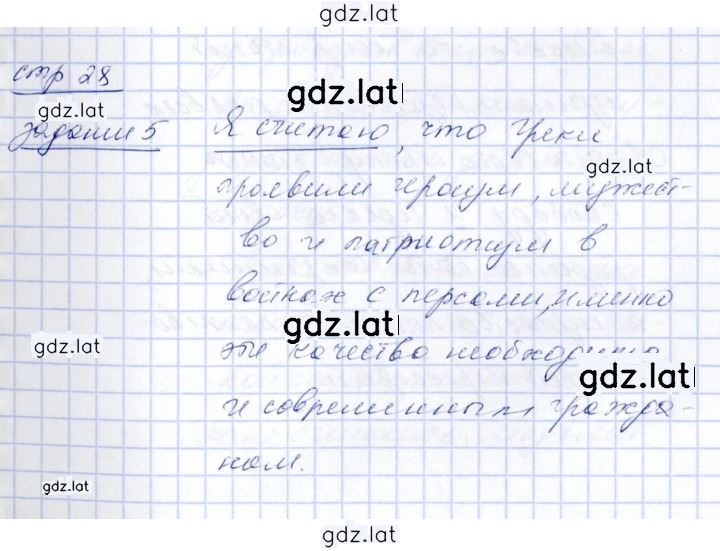 gdz.lat
стр 28
gdz.lat
gdz.lat
задание 5 Я считаю, что греки
проявили героизм, мужест-
gdz.lat
во и патриотизм в
войнах с персами, именно
gdz.lat
gdz.lat
эти качества необходимы
gdz.lat
и современным гражда-
нам.
gdz.lat
gdz.lat